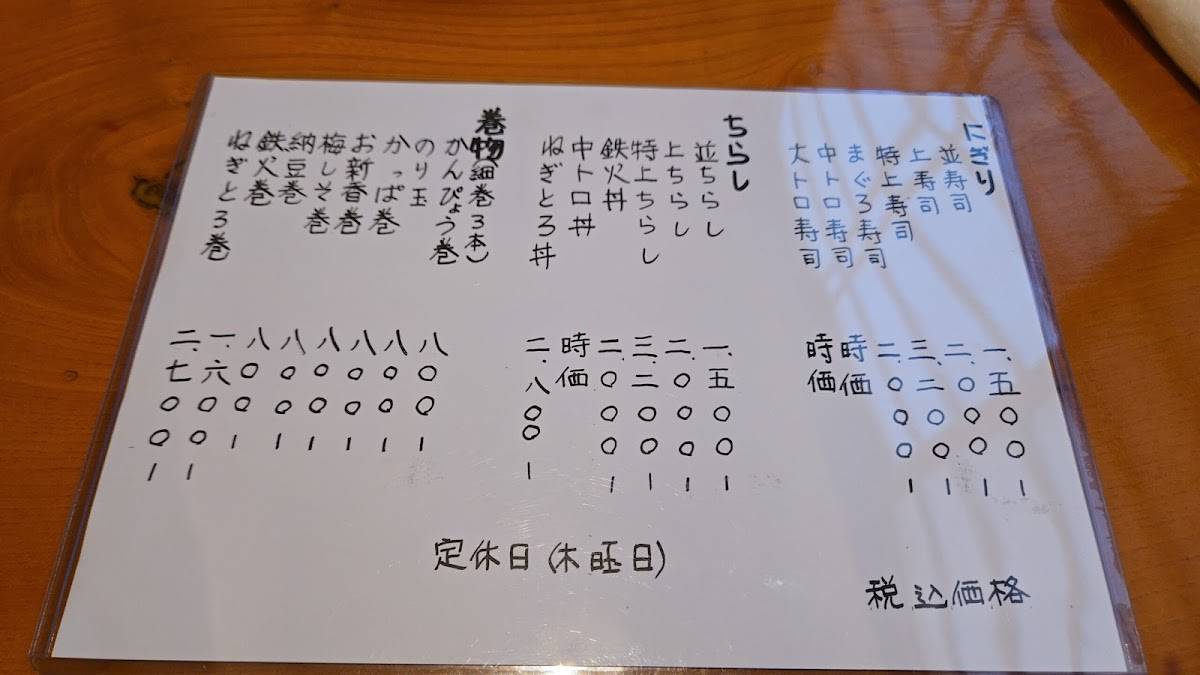 にぎり
並寿司 一、五〇〇ー
上寿司 二、〇〇〇ー
特上寿司 三、二〇〇ー
まぐろ寿司 二、〇〇〇ー
中トロ寿司 時価
大トロ寿司 時価
ちらし
並ちらし 一、五〇〇ー
上ちらし 二、〇〇〇ー
特上ちらし 三、二〇〇ー
鉄火丼 二、〇〇〇ー
中トロ丼 時価
ねぎとろ丼 二、八〇〇ー
巻物(細巻3本)
かんぴょう巻 八〇〇ー
のり玉 八〇〇ー
かっぱ巻 八〇〇ー
お新香巻 八〇〇ー
梅しそ巻 八〇〇ー
納豆巻 八〇〇ー
鉄火巻 一、六〇〇ー
ねぎとろ巻 二、七〇〇ー
定休日(木曜日)
税込価格